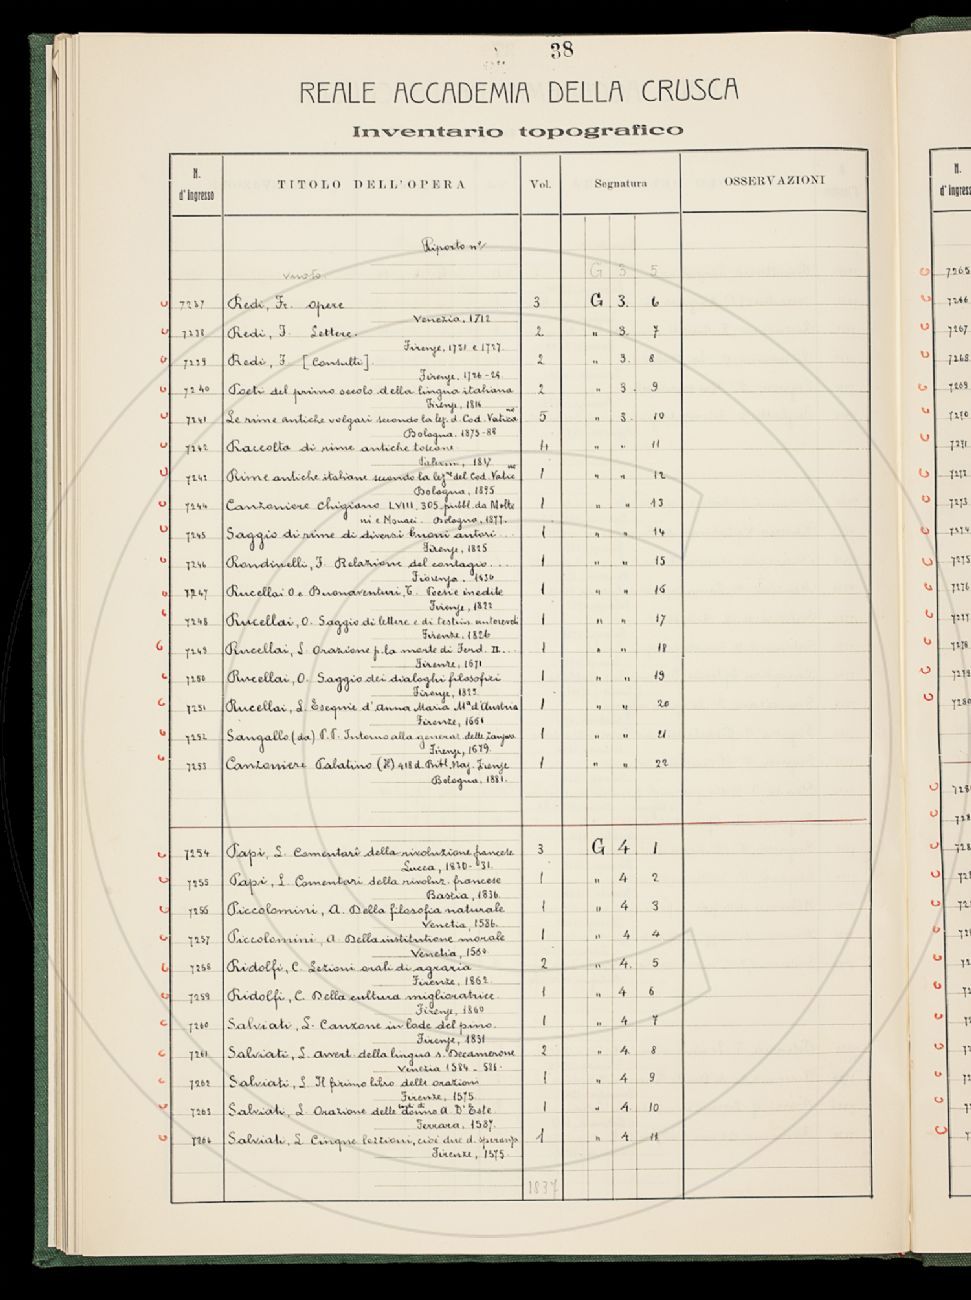 38
REALE ACCADEMIA DELLA CRUSCA
Inventario topografico
N. d'Ingresso TITOLO DELL'OPERA Vol. Segnatura OSSERVAZIONI
Riporto n°
vuoto G 3 5
7237 Redi, Fr. Opere 3 G 3. 6
Venezia, 1712
7238 Redi, F. Lettere. 2 " 3. 7
Firenze, 1731 e 1727.
7239 Redi, F. [Consulti] 2 " 3. 8
Firenze, 1726-29.
7240 Poeti del primo secolo della lingua italiana 2 " 3. 9
Firenze, 1816
7241 Le rime antiche volgari secondo la lez. d. Cod. Vaticano 5 " 3. 10
Bologna. 1875-88
7242 Raccolta di rime antiche toscane 4 " " 11
Palermo, 1817
7243 Rime antiche italiane secondo la lezne del Cod. Vatic.no 1 " " 12
Bologna, 1895
7244 Canzoniere Chigiano LVIII. 305. pubbl. da Molte 1 " " 13
ni e Monaci. Bologna, 1877.
7245 Saggio di rime di diversi buoni autori... 1 " " 14
Firenze, 1825
7246 Rondinelli, F. Relazione del contagio... 1 " " 15
Fiorenza.
7247 Rucellai O. e Buonaventuri, T. Poesie inedite 1 " " 16
Firenze, 1822
7248 Rucellai, O. Saggio di lettere e di testim. autorevoli 1 " " 17
Firenze, 1826
7249 Rucellai, L. Orazione p. la morte di Ferd. II... 1 " " 18
Firenze, 1671
7250 Rucellai, O. Saggio dei dialoghi filosofici 1 " " 19
Firenze, 1823.
7251 Rucellai, L. Esequie d'Anna Maria Ma d'Austria 1 " " 20
Firenze, 1661
7252 Sangallo (da) P. P. Intorno alla generaz. delle Zanzare 1 " " 21
Firenze, 1679.
7253 Canzoniere Palatino 418 d. Bibl. Naz. Firenze 1 " " 22
Bologna, 1881.
7254 Papi, L. Comentarî della rivoluzione francese 3 G 4 1
Lucca, 1830-31.
7255 Papi, L. Comentari della rivoluz. francese 1 " 4 2
Bastia, 1836.
7256 Piccolomini, A. Della filosofia naturale 1 " 4 3
Venetia, 1586.
7257 Piccolomini, A. Della institutione morale 1 " 4 4
Venetia, 1560
7258 Ridolfi, C. Lezioni orali di agraria 2 " 4. 5
Firenze, 1862.
7259 Ridolfi, C. Della cultura miglioratrice. 1 " 4 6
Firenze, 1860
7260 Salviati, L. Canzone in lode del pino. 1 " 4 7
Firenze, 1831
7261 Salviati, L. Avvert. della lingua s. Decamerone 2 " 4. 8
Venezia 1584-586.
7262 Salviati, L. Il primo libro delle orazioni 1 " 4 9
Firenze, 1575
7263 Salviati, L. Orazione delle lodi di donno A. D'Este 1 " 4 10
Ferrara, 1587.
7264 Salviati, L. Cinque lezzioni, cioè due d. speranza 1 " 4 11
Firenze, 1575.
1837
N. d'Ingresso
7265
7266
7267
7268
7269
7270
7271
7272
7273
7274
7275
7276
7277
7278
7279
7280